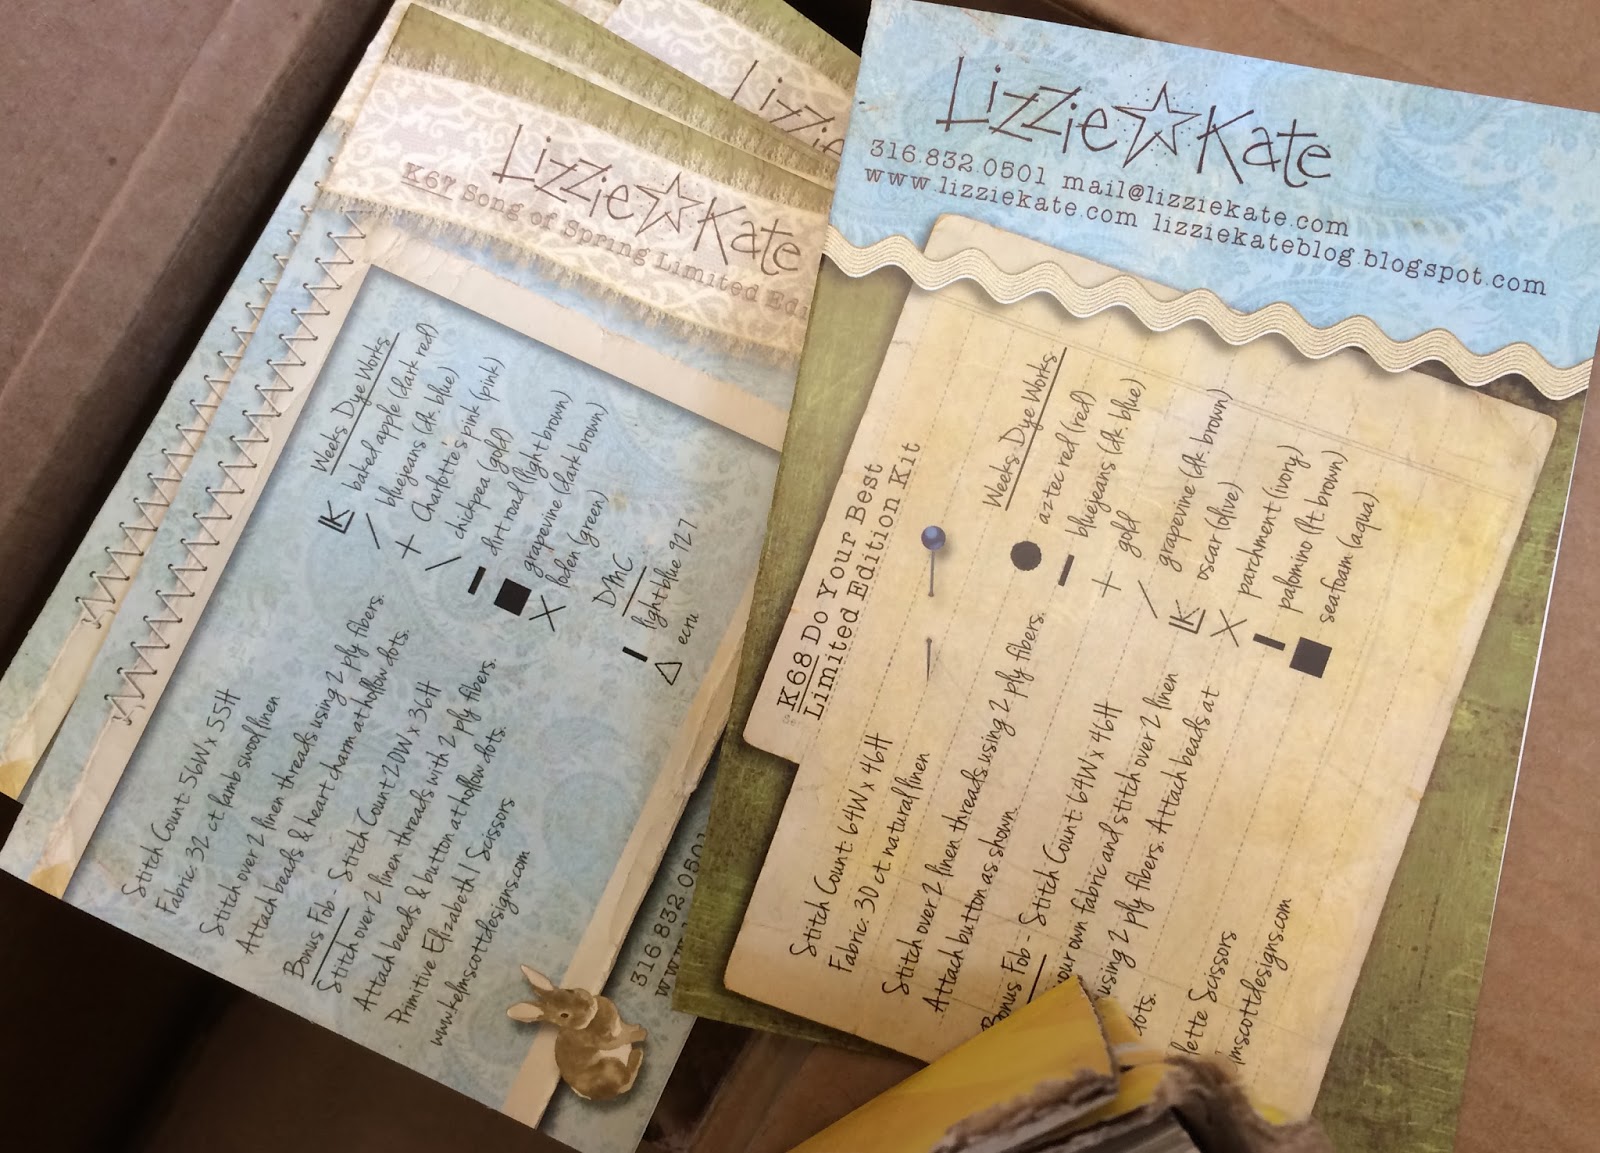 Lizzie Kate
Lizzie Kate
K67 Song of Spring Limited
Weeks Dye Works
LK baked apple (dark red)
bluejeans (dk. blue)
Charlotte's pink (pink)
chickpea (gold)
dirt road (light brown)
grapevine (dark brown)
loden (green)
DMC
light blue 927
ecru
Stitch Count: 56W x 55H
Fabric: 32 ct lambswool linen
Stitch over 2 linen threads using 2 ply fibers.
Attach beads & heart charm at hollow dots.
Bonus Fob - Stitch Count 20W x 36H
Stitch over 2 linen threads with 2 ply fibers.
Attach beads & button at hollow dots.
Primitive Elizabeth I Scissors
www.kelmscottdesigns.com
316.832.0501
Lizzie Kate
316.832.0501 mail@lizziekate.com
www.lizziekate.com lizziekateblog.blogspot.com
K68 Do Your Best
Limited Edition Kit
Weeks Dye Works
aztec red (red)
bluejeans (dk. blue)
gold
grapevine (dk. brown)
LK oscar (olive)
parchment (ivory)
palomino (lt. brown)
seafoam (aqua)
Stitch Count: 64W x 46H
Fabric: 30 ct natural linen
Stitch over 2 linen threads using 2 ply fibers.
Attach button as shown.
Bonus Fob - Stitch Count: 64W x 46H
your own fabric and stitch over 2 linen
using 2 ply fibers. Attach beads at
dots.
lette Scissors
lmscottdesigns.com